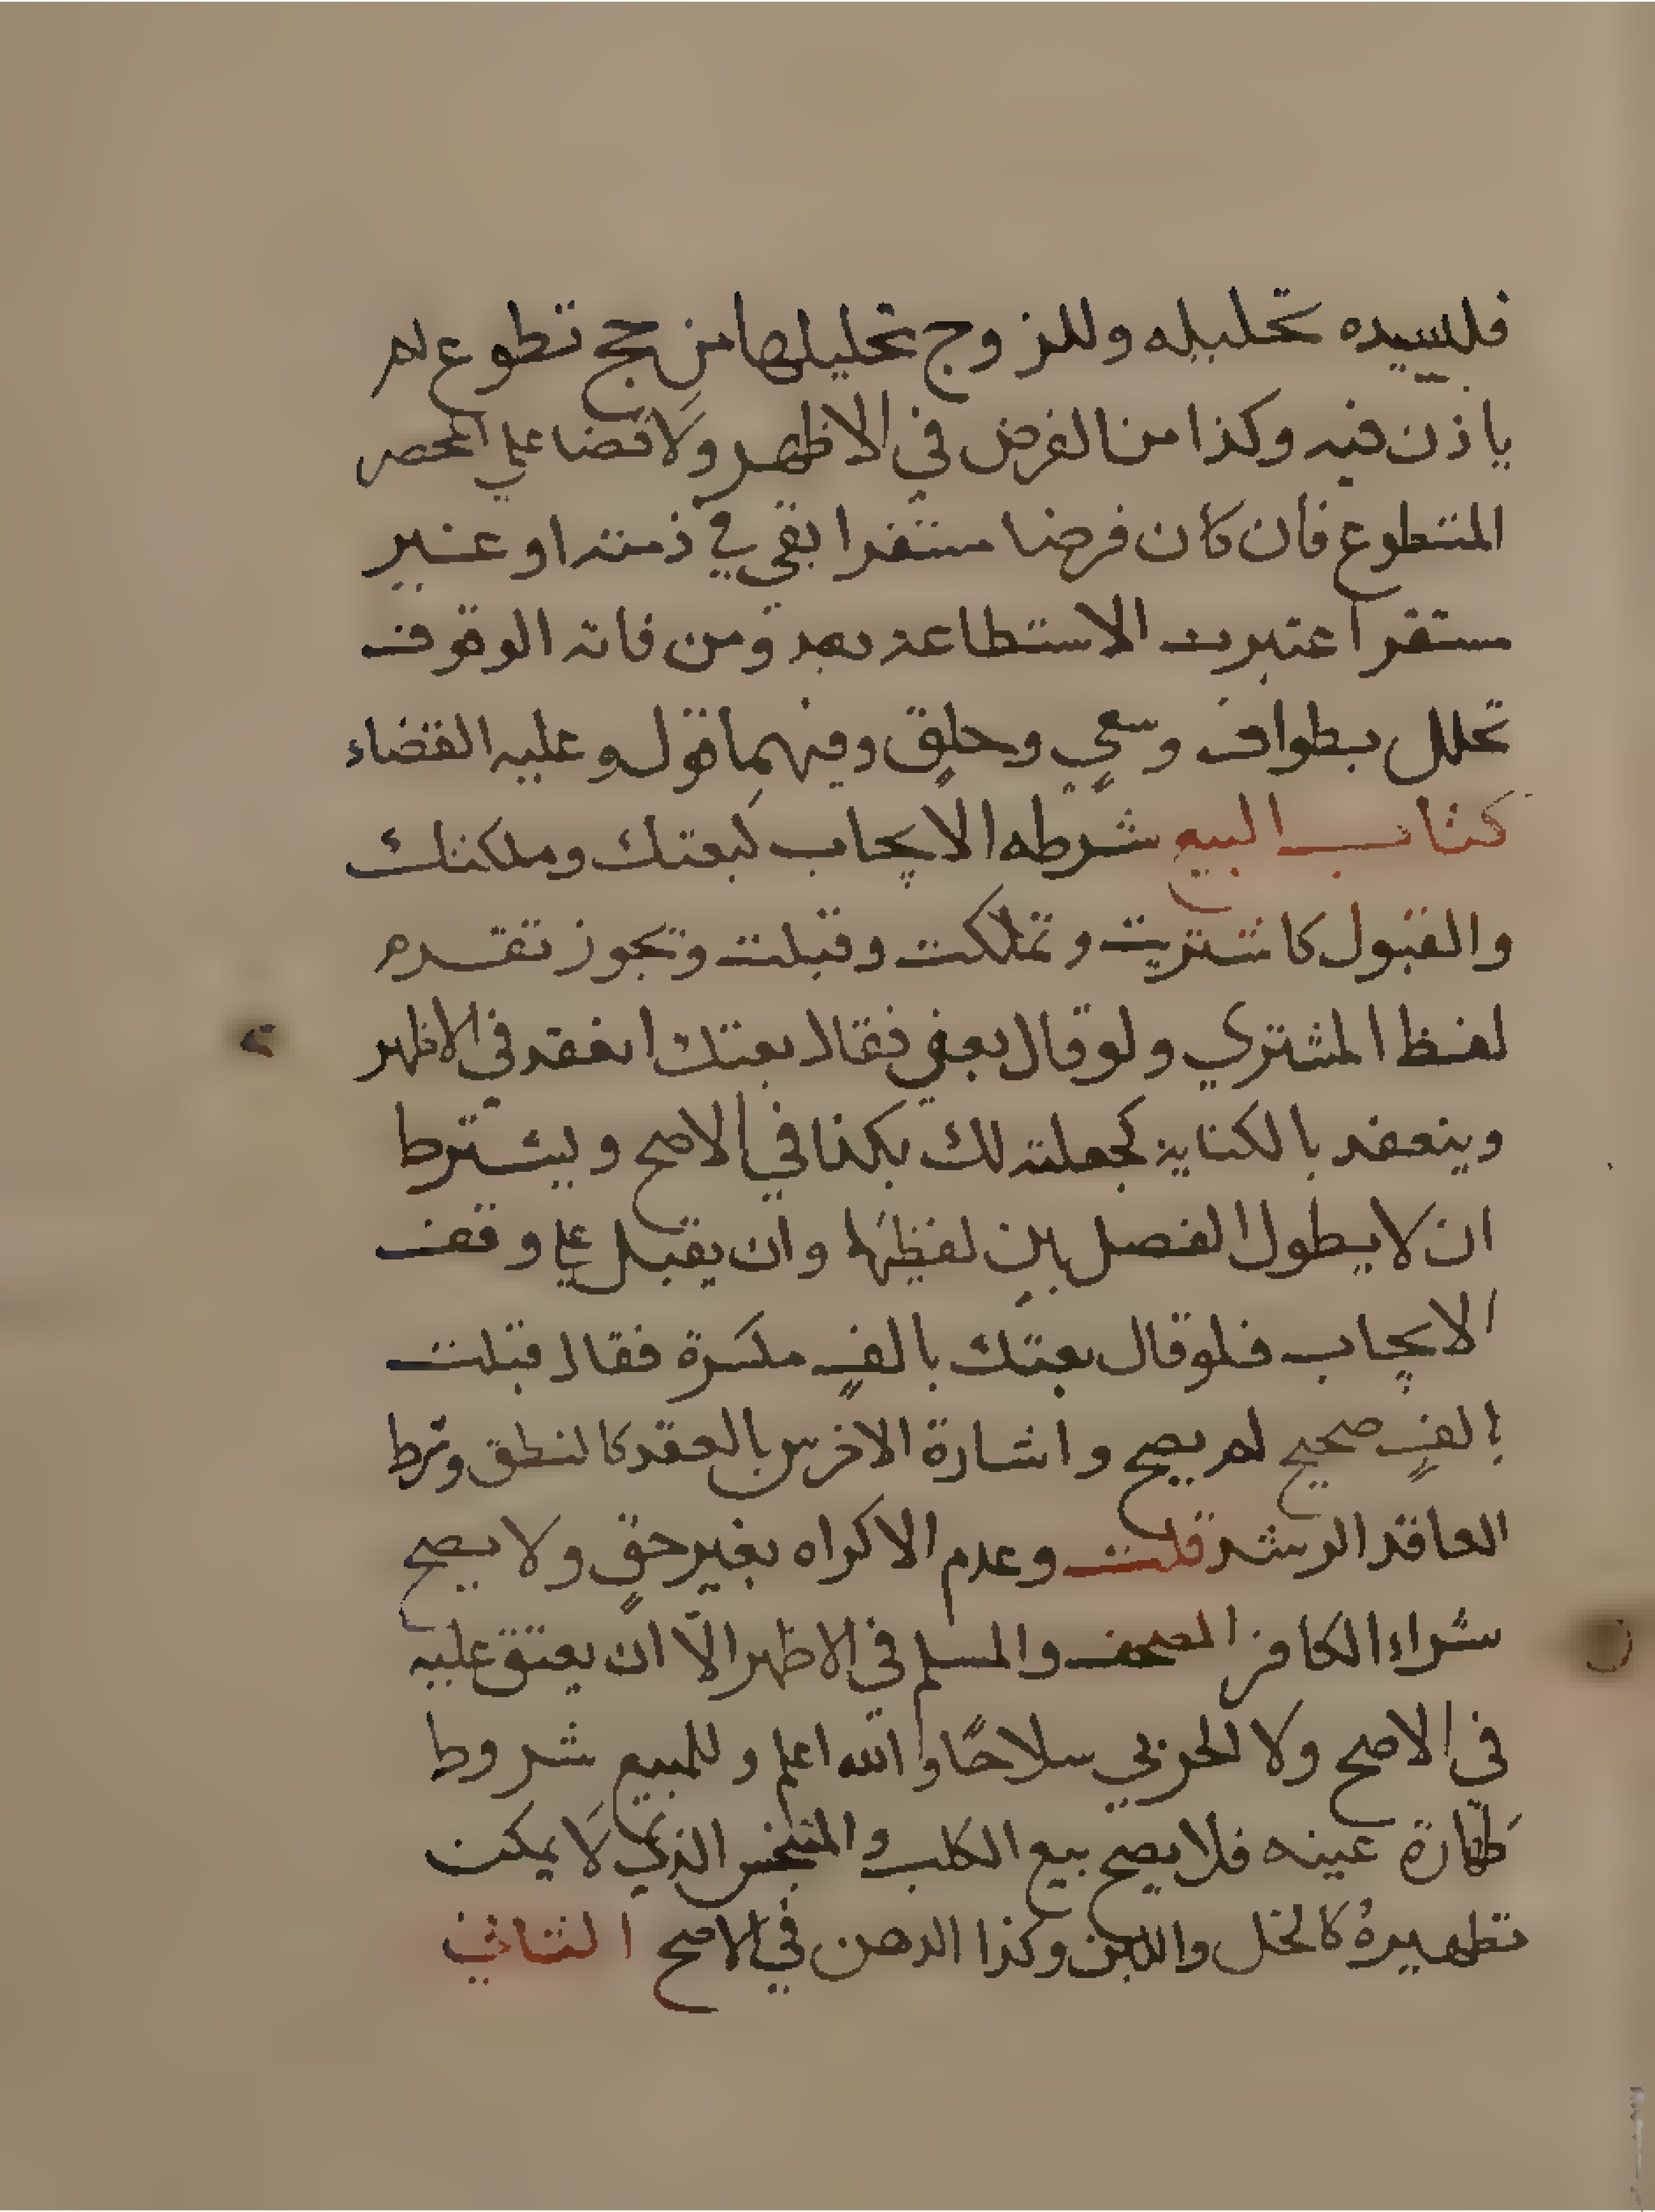 فلسيده تحليله وللزوج تحليلها من حج تطوع لم
ياذن فيه وكذا من الفرض في الاظهر ولا قضا علي المحصر
المتطوع فان كان فرضا مستقرا بقي في ذمته او غير
مستقر اعتبرت الاستطاعة بعد ومن فاته الوقوف
تحلل بطواف وسعي وحلق وفيهما قول وعليه القضاء
كتاب البيع شرطه الايجاب كبعتك وملكتك
والقبول كاشتريت وتملكت وقبلت ويجوز تقدم
لفظ المشتري ولو قال بعني فقال بعتك انعقد في الاظهر
وينعقد بالكناية كجعلته لك بكذا في الاصح ويشترط
ان لا يطول الفصل بين لفظيهما وان يقبل علي وقف
الايجاب فلو قال بعتك بالفٍ مكسرة فقال قبلت
بالفٍ صحيح لم يصح واشارة الاخرس بالعقد كالنطق وشرط
العاقد الرشد قلت وعدم الاكراه بغير حقٍ ولا يصح
شراء الكافر المصحف والمسلم في الاظهر الّا ان يعتق عليه
في الاصح ولا الحربي سلاحًا والله اعلم وللمبيع شروط
طهارة عينه فلا يصح بيع الكلب والمتنجس الذي لا يمكن
تطهيرهُ كالخل واللبن وكذا الدهن في الاصح الثاني